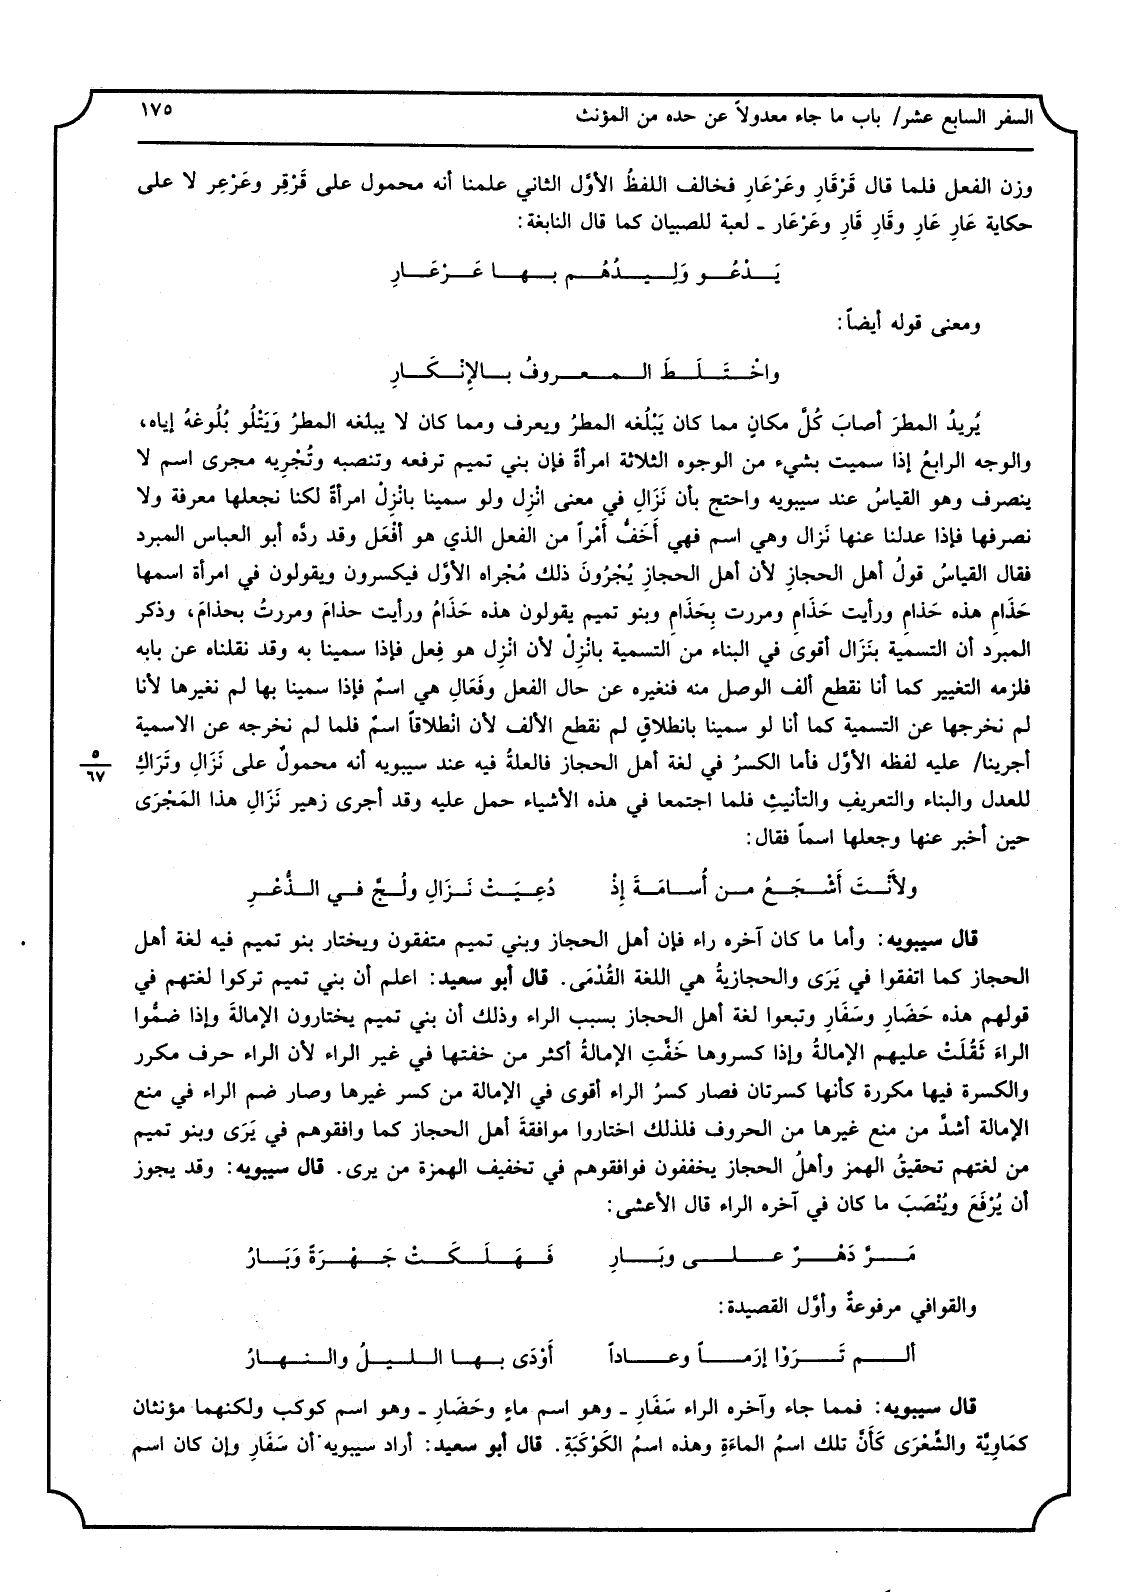 السفر السابع عشر/ باب ما جاء معدولاً عن حده من المؤنث
١٧٥
وزن الفعل فلما قال قَرْقَارِ وعَرْعَارِ فخالف اللفظُ الأوَّل الثاني علمنا أنه محمول على قَرْقِر وعَرْعِر لا على
حكاية عَارِ عَارِ وقَارِ قَارِ وعَرْعَار ـ لعبة للصبيان كما قال النابغة:
يَدْعُو وَلِيدُهُم بها عَرْعَارِ
ومعنى قوله أيضاً:
واخْتَلَطَ المعروفُ بالإِنْكَارِ
يُريدُ المطرَ أصابَ كُلَّ مكانٍ مما كان يَبْلُغه المطرُ ويعرف ومما كان لا يبلغه المطرُ وَيَتْلُو بُلُوغهُ إياه،
والوجه الرابعُ إذا سميت بشيء من الوجوه الثلاثة امرأةً فإن بني تميم ترفعه وتنصبه وتُجْرِيه مجرى اسم لا
ينصرف وهو القياسُ عند سيبويه واحتج بأن نَزَالِ في معنى انْزِل ولو سمينا بانْزِلْ امرأةً لكنا نجعلها معرفة ولا
نصرفها فإذا عدلنا عنها نَزال وهي اسم فهي أَخَفُّ أمْراً من الفعل الذي هو أفْعَل وقد ردَّه أبو العباس المبرد
فقال القياسُ قولُ أهل الحجازِ لأن أهل الحجازِ يُجْرُونَ ذلك مُجْراه الأوَّل فيكسرون ويقولون في امرأة اسمها
حَذَامِ هذه حَذامِ ورأيت حَذَامِ ومررت بِحَذَامِ وبنو تميم يقولون هذه حَذَامُ ورأيت حذامَ ومررتُ بحذامَ، وذكر
المبرد أن التسمية بنَزَال أقوى في البناء من التسمية بانْزِلْ لأن انْزِل هو فِعل فإذا سمينا به وقد نقلناه عن بابه
فلزمه التغيير كما أنا نقطع ألف الوصل منه فنغيره عن حال الفعل وفَعَالِ هي اسمٌ فإذا سمينا بها لم نغيرها لأنا
لم نخرجها عن التسمية كما أنا لو سمينا بانطلاقٍ لم نقطع الألف لأن انْطلاقاً اسمٌ فلما لم نخرجه عن الاسمية
أجرينا/ عليه لفظه الأوَّل فأما الكسرُ في لغة أهل الحجاز فالعلةُ فيه عند سيبويه أنه محمولٌ على نَزَالِ وتَرَاكِ
٥
٦٧
للعدل والبناء والتعريفِ والتأنيثِ فلما اجتمعا في هذه الأشياء حمل عليه وقد أجرى زهير نَزَالِ هذا المَجْرَى
حين أخبر عنها وجعلها اسماً فقال:
ولأَنْتَ أَشْجَعُ من أُسامَةَ إِذْ دُعِيَتْ نَزَالِ ولُجَّ في الذُّعْرِ
قال سيبويه: وأما ما كان آخره راء فإن أهل الحجاز وبني تميم متفقون ويختار بنو تميم فيه لغة أهل
الحجاز كما اتفقوا في يَرَى والحجازيةُ هي اللغة القُدْمَى. قال أبو سعيد: اعلم أن بني تميم تركوا لغتهم في
قولهم هذه حَضَارِ وسَفَارِ وتبعوا لغة أهل الحجاز بسبب الراء وذلك أن بني تميم يختارون الإمالةَ وإذا ضمُّوا
الراءَ ثَقُلَتْ عليهم الإمالةُ وإذا كسروها خَفَّتِ الإمالةُ أكثر من خفتها في غير الراء لأن الراء حرف مكرر
والكسرة فيها مكررة كأنها كسرتان فصار كسرُ الراء أقوى في الإمالة من كسر غيرها وصار ضم الراء في منع
الإمالة أشدَّ من منع غيرها من الحروف فلذلك اختاروا موافقةَ أهل الحجاز كما وافقوهم في يَرَى وبنو تميم
من لغتهم تحقيقُ الهمز وأهلُ الحجاز يخففون فوافقوهم في تخفيف الهمزة من يرى. قال سيبويه: وقد يجوز
أن يُرْفَعَ ويُنْصَبَ ما كان في آخره الراء قال الأعشى:
مَرَّ دَهْرٌ على وبَارِ فَهَلَكَتْ جَهْرَةً وَبَارُ
والقوافي مرفوعةٌ وأوَّل القصيدة:
ألم تَرَوْا إرَماً وعاداً أَوْدَى بها الليلُ والنهارُ
قال سيبويه: فمما جاء وآخره الراء سَفَارِ ـ وهو اسم ماءٍ وحَضَارِ ـ وهو اسم كوكب ولكنهما مؤنثان
كمَاوِيَّة والشِّعْرَى كَأَنَّ تلك اسمُ الماءَةِ وهذه اسمُ الكَوْكَبَةِ. قال أبو سعيد: أراد سيبويه أن سَفَارِ وإن كان اسم